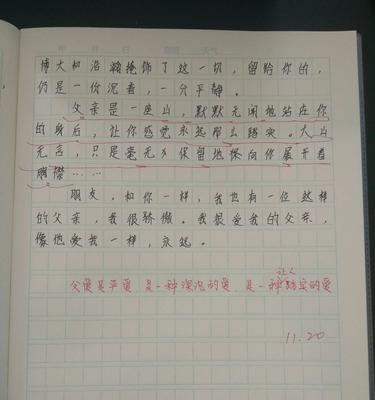 年 月 日 星期 天气
博大和浩瀚掩饰了这一切，留给你的，
仍是一份沉着，一分平静。
父亲是一座山，默默无闻地站在你
的身后，让你感觉永远那么踏实。大山
无言，只是毫无保留地像向你展开着
胸襟……
朋友，和你一样，我也有一位这样
的父亲，我很骄傲。我很爱我的父亲，
像他爱我一样，永远。
父爱是严爱 是一种深沉的爱 是一种让人踏实的爱
11.20